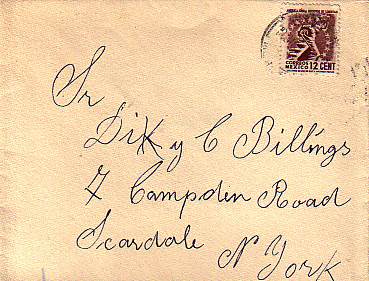 CORREOS
MEXICO 12 CENT
Sr
Dik y C Billings
7 Campden Road
Scardale N York